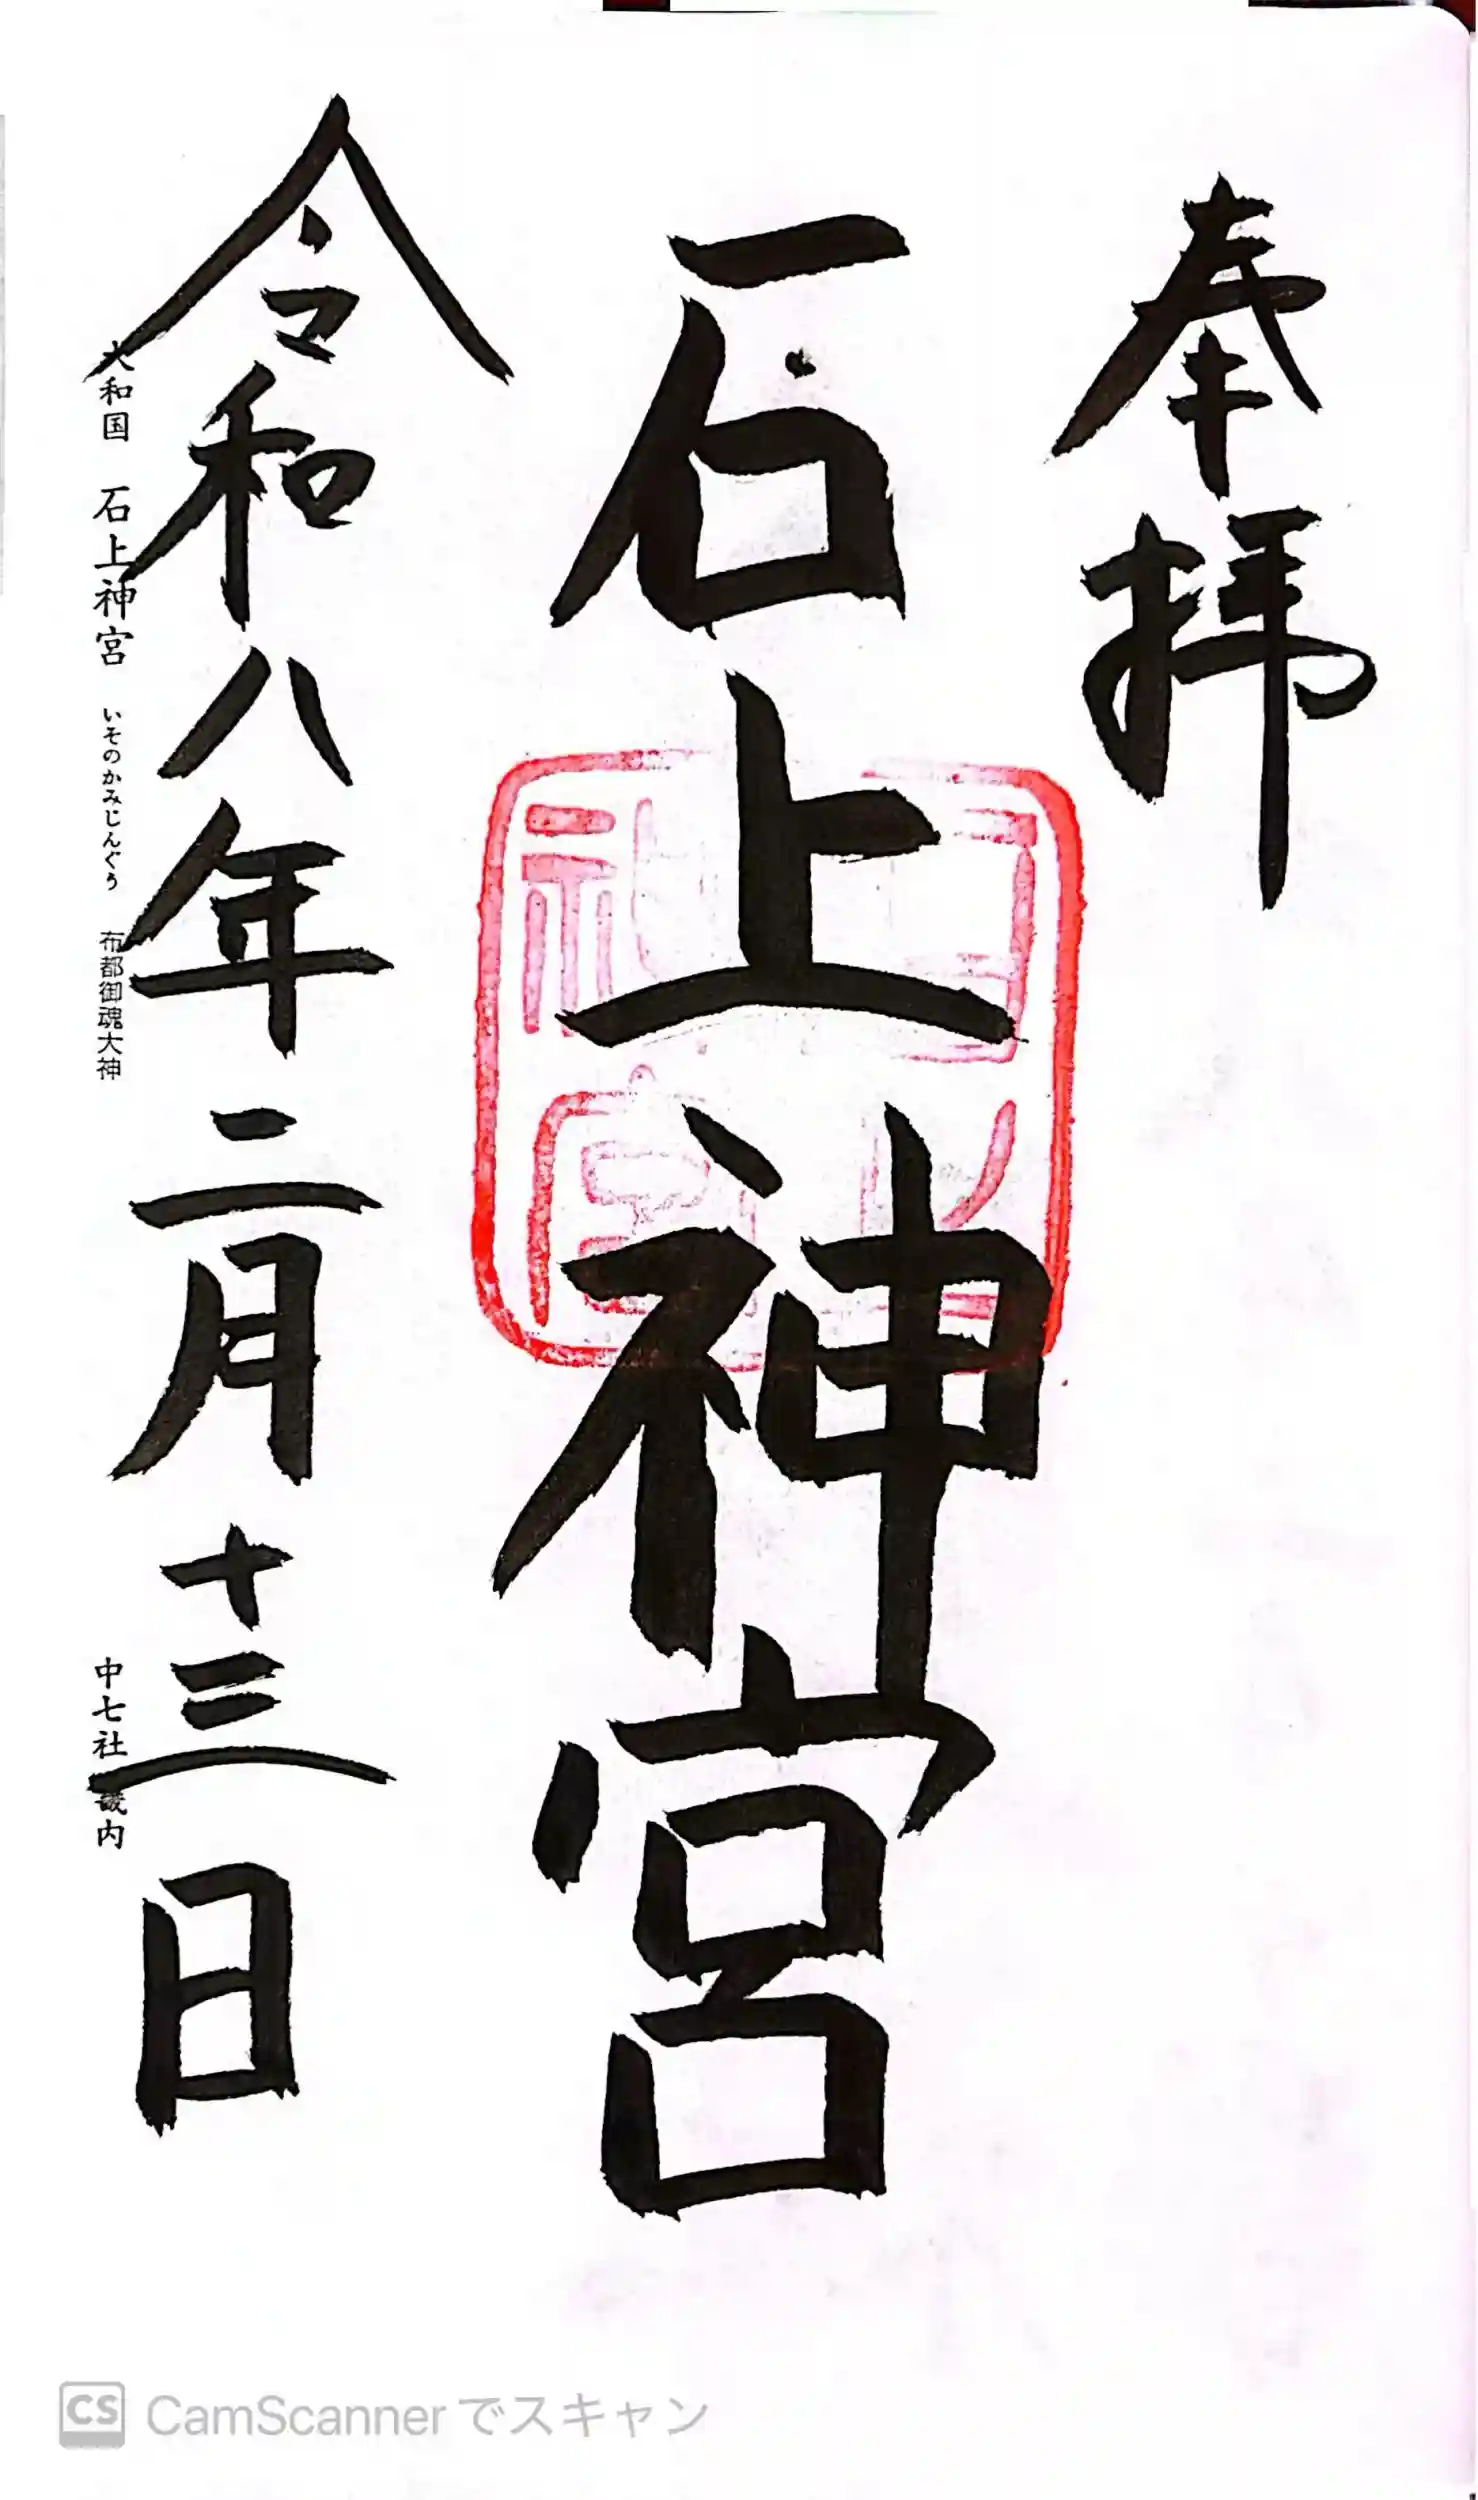 奉拝
石上神宮
令和八年二月十三日
大和国 石上神宮 いそのかみじんぐう 布都御魂大神
中七社 畿内
CS CamScannerでスキャン